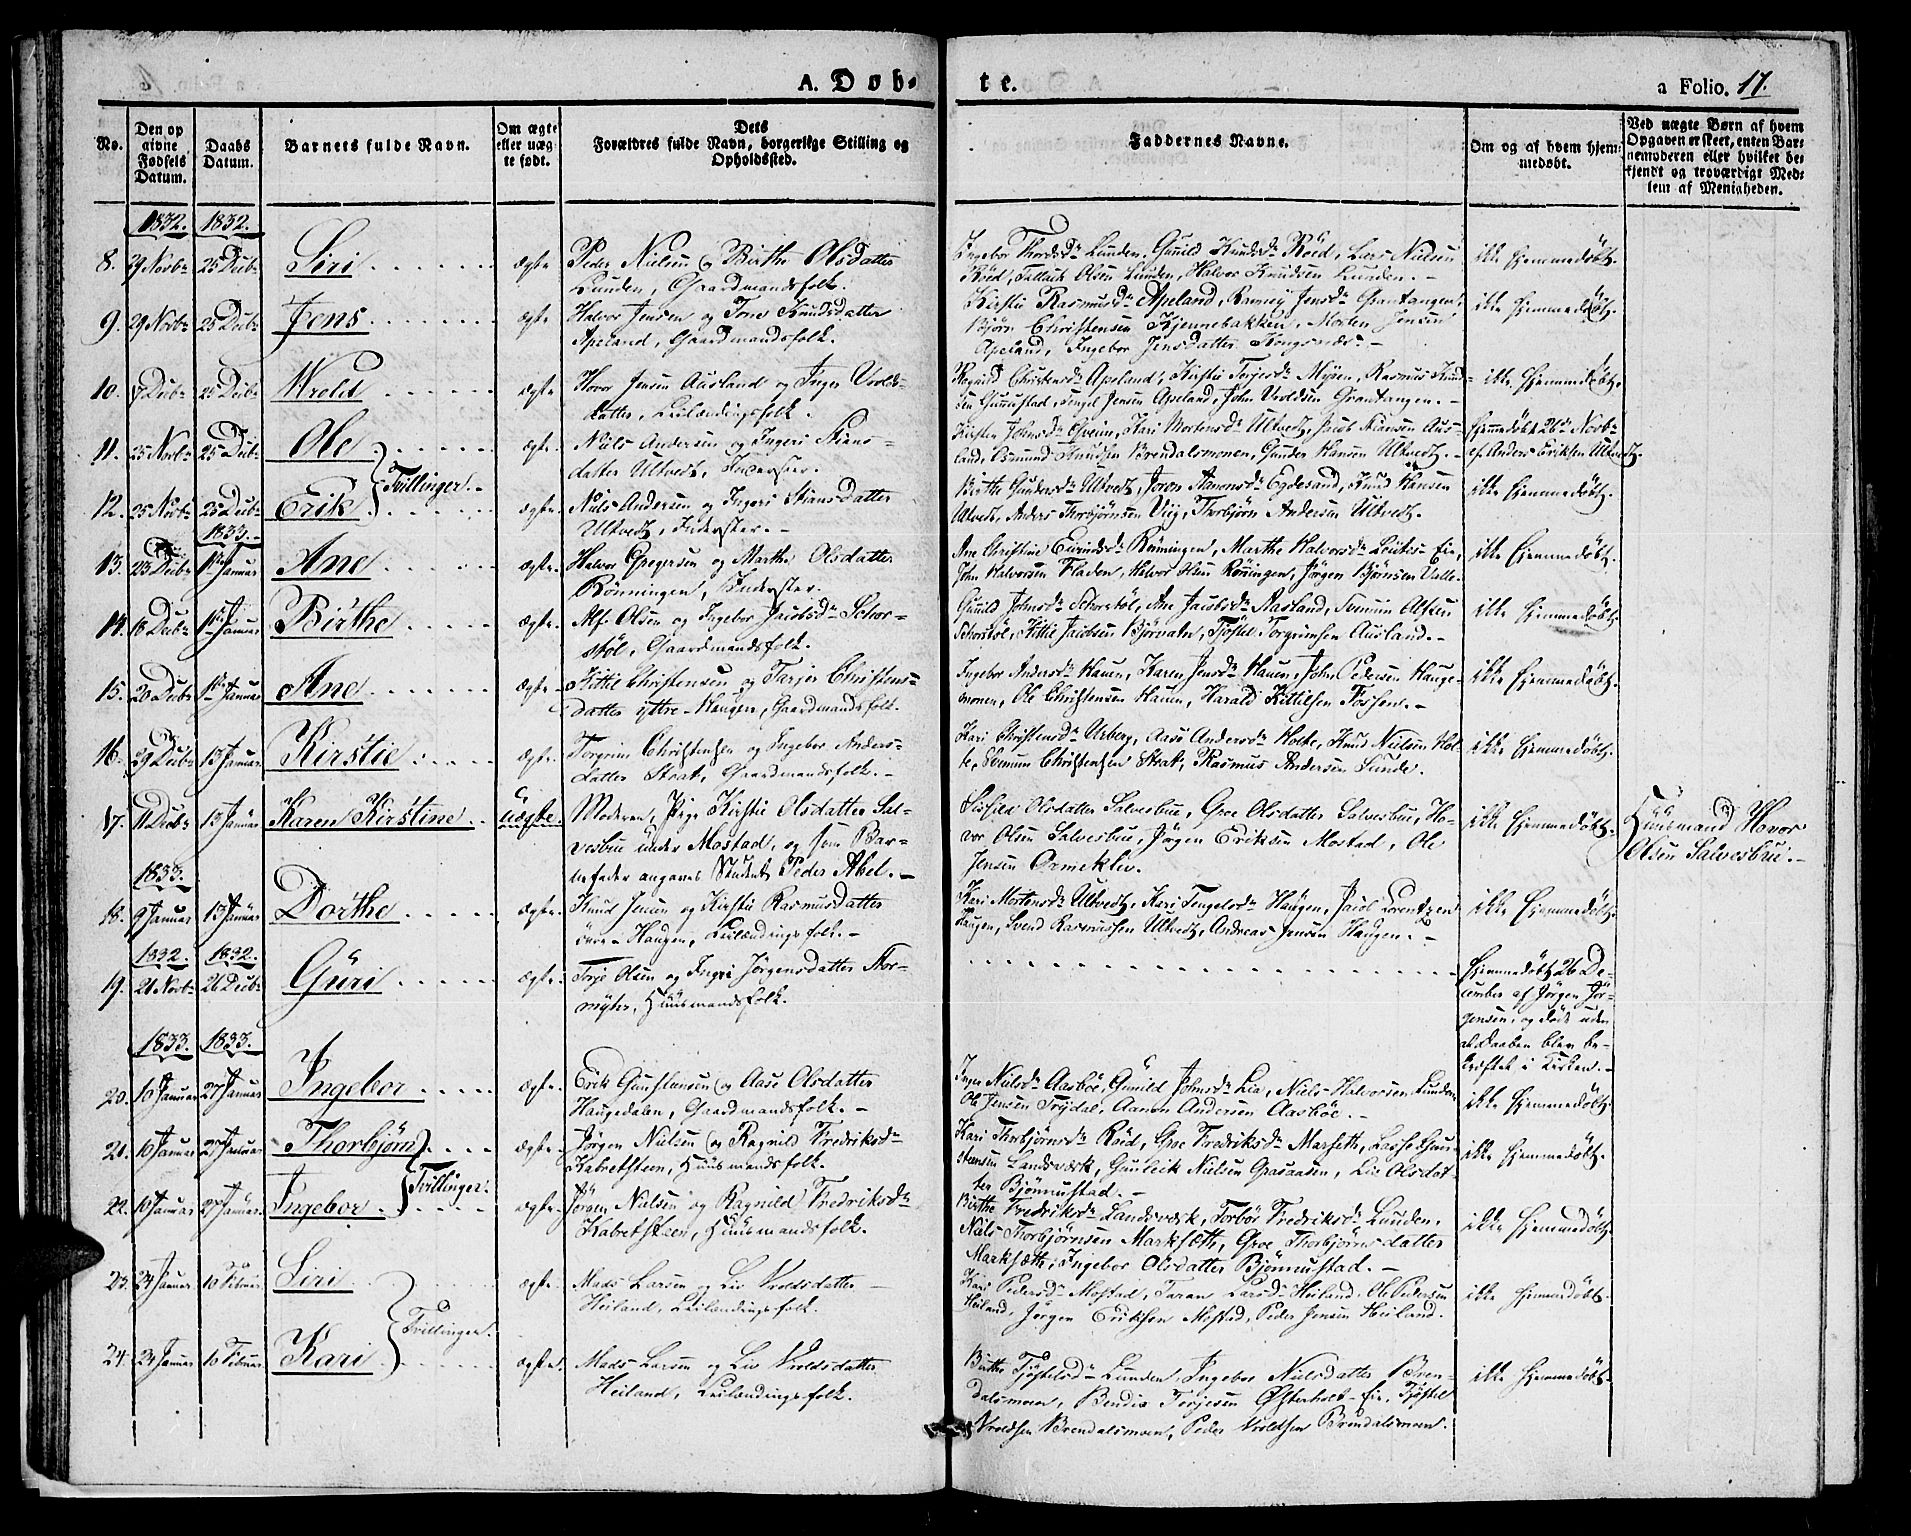 A. Döb-
te.
a Folio. 17.
No.
Den op
givne
Fødsels
Datum.
Daabs
Datum.
Barnets fulde Navn.
Om ægte
eller uæg
te født.
Dets
Forældres fulde Navn, borgerlige Stilling og
Opholdssted.
Faddernes Navne.
Om og af hvem hjem-
medøbt.
Ved uægte Børn af hvem
Opgaven er skeet, enten Bar-
nemoderen eller hvilket be-
kjendt og troværdigt Med-
lem af Menigheden.
1832. 1832.
8. 29 Novbr 25 Decbr Siri ægte Peder Nielsen og Birthe Olsdatter
Lunden, Gaardmandsfolk.
Ingebor Thordsdr Lunden, Gunild Knudsdr Röed, Lars Nielsen
Röed, Tallack Olsen Lunden, Halvor Knudsen Lunden.
ikke hjemmedöbt.
9. 29 Novbr 25 Decbr Jens ægte Halvor Jensen og Tone Knudsdatter
Apeland, Gaardmandsfolk.
Kirstie Rasmusdr Apeland, Ranney Jensdr Grantangen,
Björn Christensen Kjennebakken, Morten Jensen
Apeland, Ingebor Jensdatter Kongsnæs.
ikke hjemmedöbt.
10. 7 Decbr 25 Decbr Wrold ægte Hovor Jensen Ausland og Inger Vrolds-
datter, Leilændingsfolk.
Ragnild Christensdr Apeland, Kirstie Terjesdr Myren, Rasmus Knud-
sen Gunnustad, Tengel Jensen Apeland, John Vroldsen Grantangen.
ikke hjemmedöbt.
11. 25 Novbr 25 Decbr Ole ægte Niels Andersen og Ingeri Stians-
datter Ultvedt, Inderster.
Kirsten Johnsdr Hveim, Kari Mortensdr Ultvedt, Jacob Stiansen Aus-
land, Osmund Knudsen Brendalsmonen, Gunder Hansen Ultvedt.
hjemmedöbt 26de Novbr
af Anders Eriksen Ultvedt.
Tvillinger.
12. 25 Novbr 25 Decbr Erik ægte Niels Andersen og Ingeri Stiansdatter
Ultvedt, Inderster.
Birthe Gundersdr Ultvedt, Joron Aanonsdr Egdesand, Knud Hansen
Ultvedt, Anders Thorbjörnsen Viig, Thorbjörn Andersen Ultvedt.
ikke hjemmedöbt.
1833.
13. 23 Decbr 1ste Januar Ane ægte Halvor Gregersen og Marthe Olsdatter
Rönningen, Inderster.
Ane Christine Eivindsdr Rönningen, Marthe Halvorsdr Lentes-Eie,
John Halvorsen Fladen, Halvor Olsen Röningen, Jörgen Björnsen Valle.
ikke hjemmedöbt.
14. 16 Decbr 1ste Januar Birthe ægte Alf Olsen og Ingebor Jacobsdr Schor-
stöl, Gaardmandsfolk.
Gunild Johnsdr Schorstöl, Ane Jacobsdr Aasland, Svenum Alfsen
Schorstöl, Kittil Jacobsen Björvatn, Tjöstel Torgrimsen Ausland.
ikke hjemmedöbt.
15. 20 Decbr 1ste Januar Ane ægte Kittil Christensen og Tarjer Christens-
datter ÿttre-Haugen, Gaardmandsfolk.
Ingebor Andersdr Hauen, Karen Jensdr Hauen, John Pedersen Hauge-
monen, Ole Christensen Hauen, Harald Kittilsen Fossen.
ikke hjemmedöbt.
16. 29 Decbr 13 Januar Kirstie ægte Torgrim Christensen og Ingebor Anders-
datter Stoat, Gaardmandsfolk.
Kari Christensdr Urberg, Aase Andersdr Holte, Knud Nielsen Hol-
te, Svenum Christensen Stoat, Rasmus Andersen Lunde.
ikke hjemmedöbt.
17. 11 Decbr 13 Januar Karen Kirstine uægte. Moderen, Pige Kirstie Olsdatter Sal-
vesbue under Mostad, og som Bar-
nefader angaves Student Peder Abel.
Sissild Olsdatter Salvesbue, Groe Olsdatter Salvesbue, Ho-
vor Olsen Salvesbue, Jörgen Eriksen Mostad, Ole
Jensen Ormeklev.
ikke hjemmedöbt.
Huusmand Hovor
Olsen Salvesbue.
1833.
18. 9 Januar 13 Januar Dorthe ægte Knud Jensen og Kirstie Rasmusdatter
övre-Haugen, Leilændingsfolk.
Kari Mortensdr Ultvedt, Kari Tengelsdr Haugen, Jacob Lorentzen
Haugen, Svend Rasmussen Ultvedt, Andreas Jensen Haugen.
ikke hjemmedöbt.
1832. 1832.
19. 21 Novbr 26 Decbr Guri ægte Terje Olsen og Ingri Jörgensdatter Stor-
myhr, Huusmandsfolk.
hjemmedöbt 26 De-
cember af Jörgen Jör-
gensen, og döde uden
at Daaben blev be-
kræftet i Kirken.
1833. 1833.
20. 10 Januar 27 Januar Ingebor ægte Erik Gunstensen og Aase Olsdatter
Haugedalen, Gaardmandsfolk.
Inger Nielsdr Aasböe, Gunild Johnsdr Lia, Niels Halvorsen Lunden,
Ole Jensen Trydal, Aanon Andersen Aasböe.
ikke hjemmedöbt.
21. 10 Januar 27 Januar Thorbjörn ægte Jörgen Nielsen og Ragnild Fredriksdr
Kabretsteen, Huusmandsfolk.
Kari Thorbjörnsdr Röed, Groe Fredriksdr Marseth, Lasse Gun-
stensen Landsværk, Gunleik Nielsen Graaasen, Liv Olsdat-
ter Björnnustad.
ikke hjemmedöbt.
Tvillinger.
22. 10 Januar 27 Januar Ingebor ægte Jörgen Nielsen og Ragnild Fredriksdr
Kabretsteen, Huusmandsfolk.
Birthe Fredriksdr Landsværk, Torbör Fredriksdr Lunden,
Niels Thorbjörnsen Marksæth, Groe Thorbjörnsdatter
Marksæth, Ingebor Olsdatter Björnnustad.
ikke hjemmedöbt.
23. 24 Januar 10 Februar Siri ægte Mads Larsen og Liv Vroldsdatter
Heiland, Leilendingsfolk.
Kari Pedersdr Mostad, Taran Larsdr Heiland, Ole Pedersen
Heiland, Jörgen Eriksen Mostad, Peder Jensen Heiland.
ikke hjemmedöbt.
Tvillinger.
24. 24 Januar 10 Februar Kari ægte Mads Larsen og Liv Vroldsdatter
Heiland, Leilendingsfolk.
Birthe Tjöstelsdr Lunden, Ingebor Nielsdatter Bren-
dalsmoen, Bendix Terjesen Österholt-Eie, Tjöstel
Vroldsen Brendalsmoen, Peder Vroldsen Brendalsmoen.
ikke hjemmedöbt.